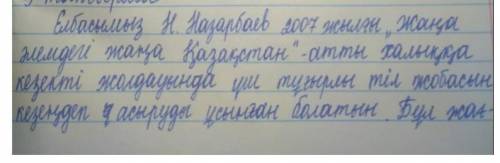 Елбасымыз Н. Назарбаев 2007 жылғы „Жаңа
әлемдегі жаңа Қазақстан“ - атты халыққа
кезекті жолдауында үш тұғырлы тіл жобасын
кезеңдеп асыруды ұсынған болатын. Бұл жаң-